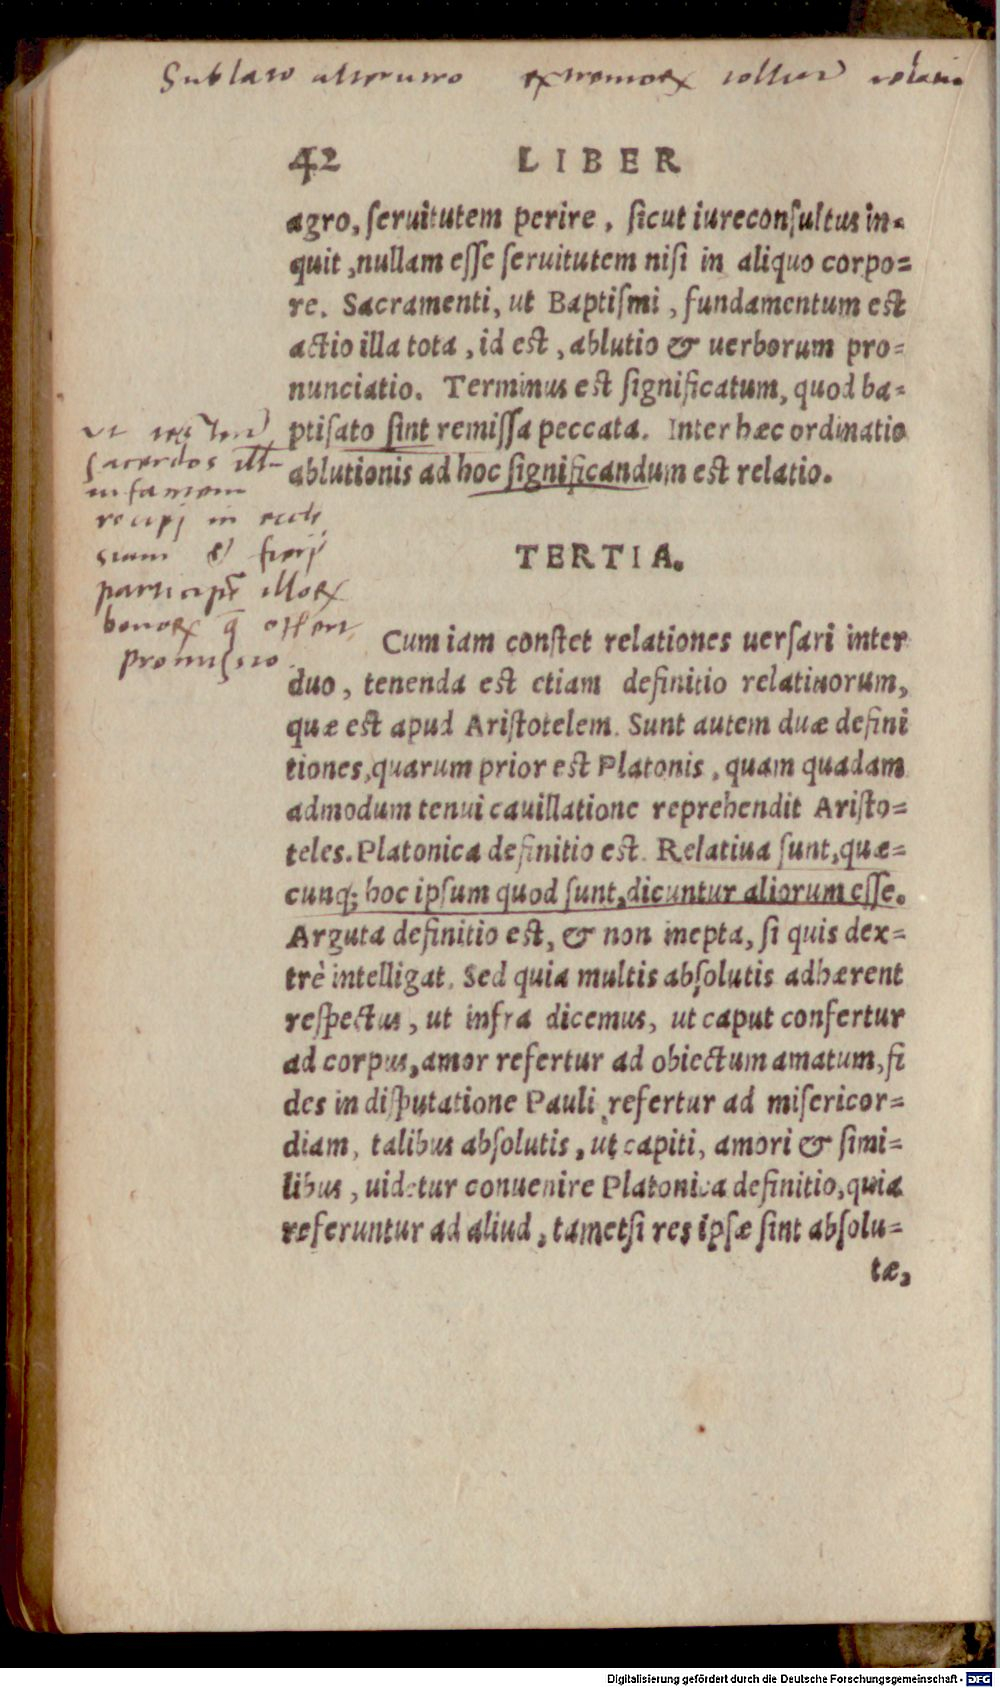 Sublato alterutro extremorum tollitur relatio
42 LIBER
agro, ſeruitutem perire, ſicut iureconſultus in-
quit, nullam eſſe ſeruitutem niſi in aliquo corpo=
re. Sacramenti, ut Baptiſmi, fundamentum est
actio illa tota, id est, ablutio & uerborum pro=
nunciatio. Terminus est ſignificatum, quod ba=
ptiſato ſint remiſſa peccata. Inter hæc ordinatio
ablutionis ad hoc ſignificandum est relatio.
sacerdos
infantem
recipi in eccle
siam & fieri
participem illorum
bonorum offert
promissio.
TERTIA.
Cum iam conſtet relationes uerſari inter
duo, tenenda est etiam definitio relatiuorum,
quæ est apud Ariſtotelem. Sunt autem duæ defini
tiones, quarum prior est Platonis, quam quadam
admodum tenui cauillatione reprehendit Ariſto=
teles. Platonica definitio est. Relatiua ſunt, quæ=
cunq; hoc ipſum quod ſunt, dicuntur aliorum eſſe.
Arguta definitio est, & non inepta, ſi quis dex=
trè intelligat. Sed quia multis abſolutis adhærent
reſpectus, ut infra dicemus, ut caput confertur
ad corpus, amor refertur ad obiectum amatum, fi
des in diſputatione Pauli refertur ad miſericor=
diam, talibus abſolutis, ut capiti, amori & ſimi=
libus, uidetur conuenire Platonica definitio, quia
referuntur ad aliud, tametſi res ipſæ ſint abſolu=
tæ,
Digitalisierung gefördert durch die Deutsche Forschungsgemeinschaft - DFG